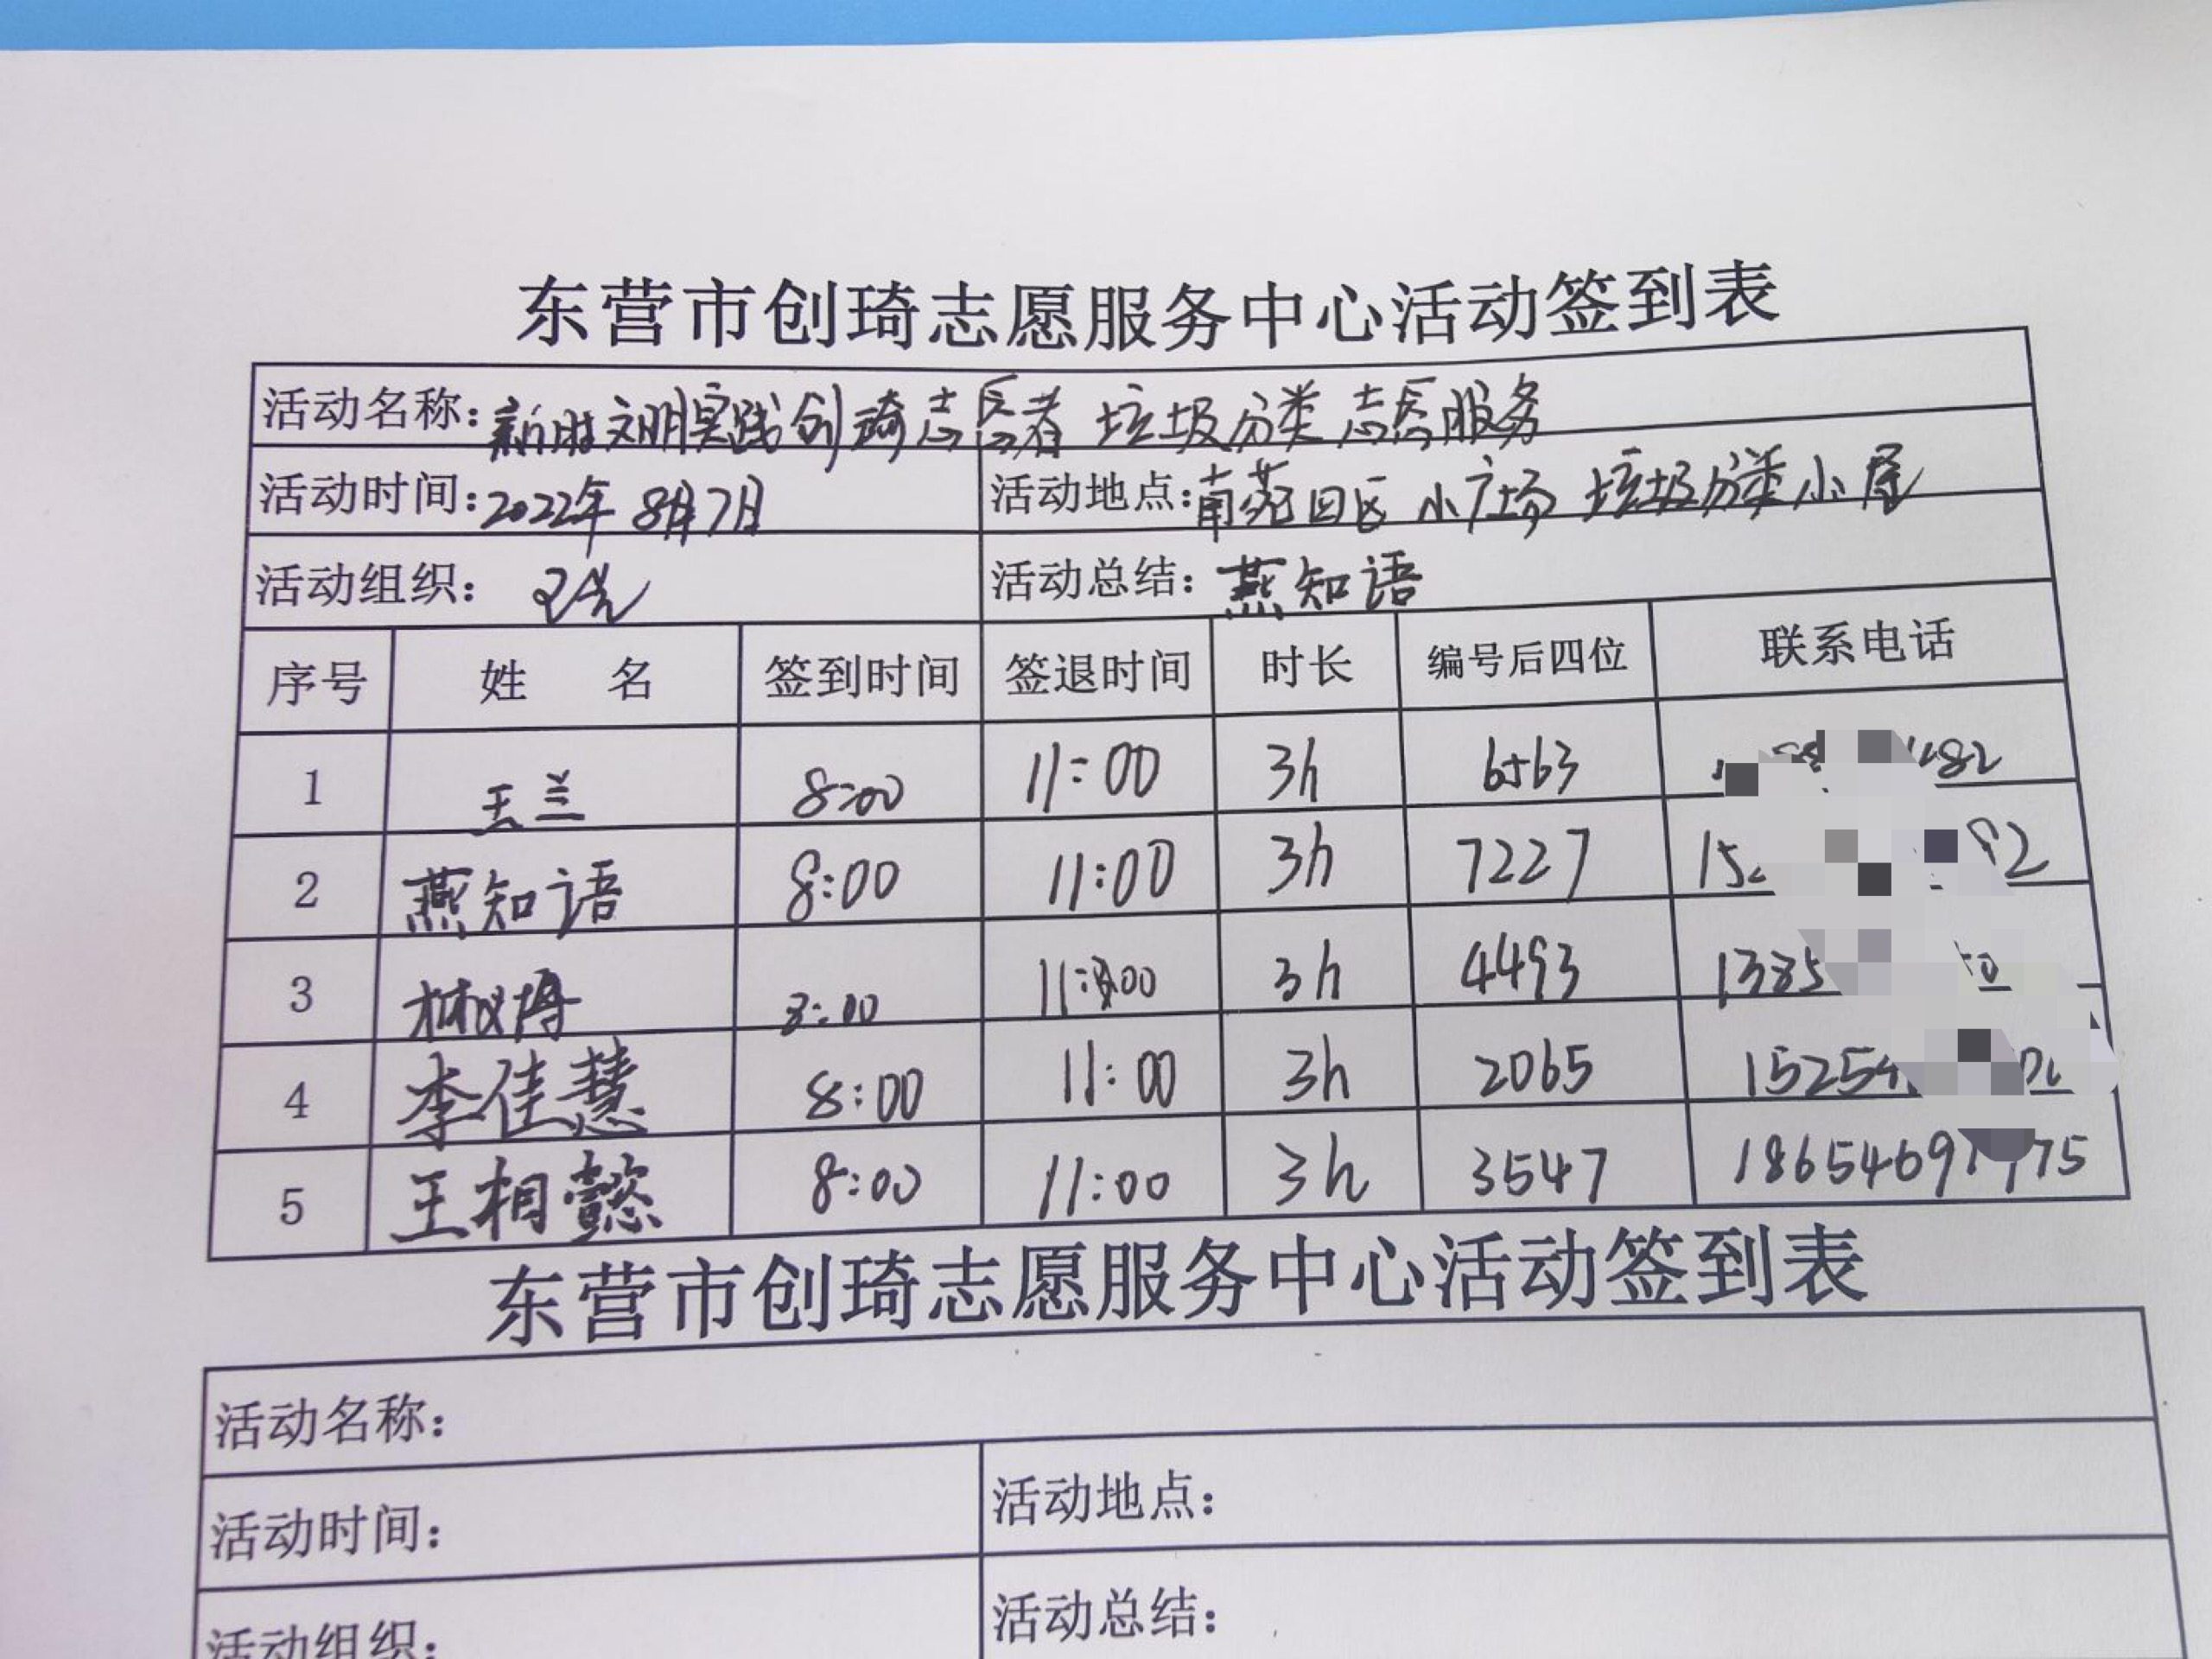 东营市创琦志愿服务中心活动签到表
活动名称：新时文明实践创琦志愿者 垃圾分类志愿服务
活动时间：2022年8月7日 活动地点：南苑四区 小广场 垃圾分类小屋
活动组织： 活动总结：燕知语
序号 姓 名 签到时间 签退时间 时长 编号后四位 联系电话
1 王兰 8:00 11:00 3h 6563
2 燕知语 8:00 11:00 3h 7227
3 8:00 11:00 3h 4493
4 李佳慧 8:00 11:00 3h 2065
5 王相懿 8:00 11:00 3h 3547
东营市创琦志愿服务中心活动签到表
活动名称：
活动时间： 活动地点：
活动组织： 活动总结：